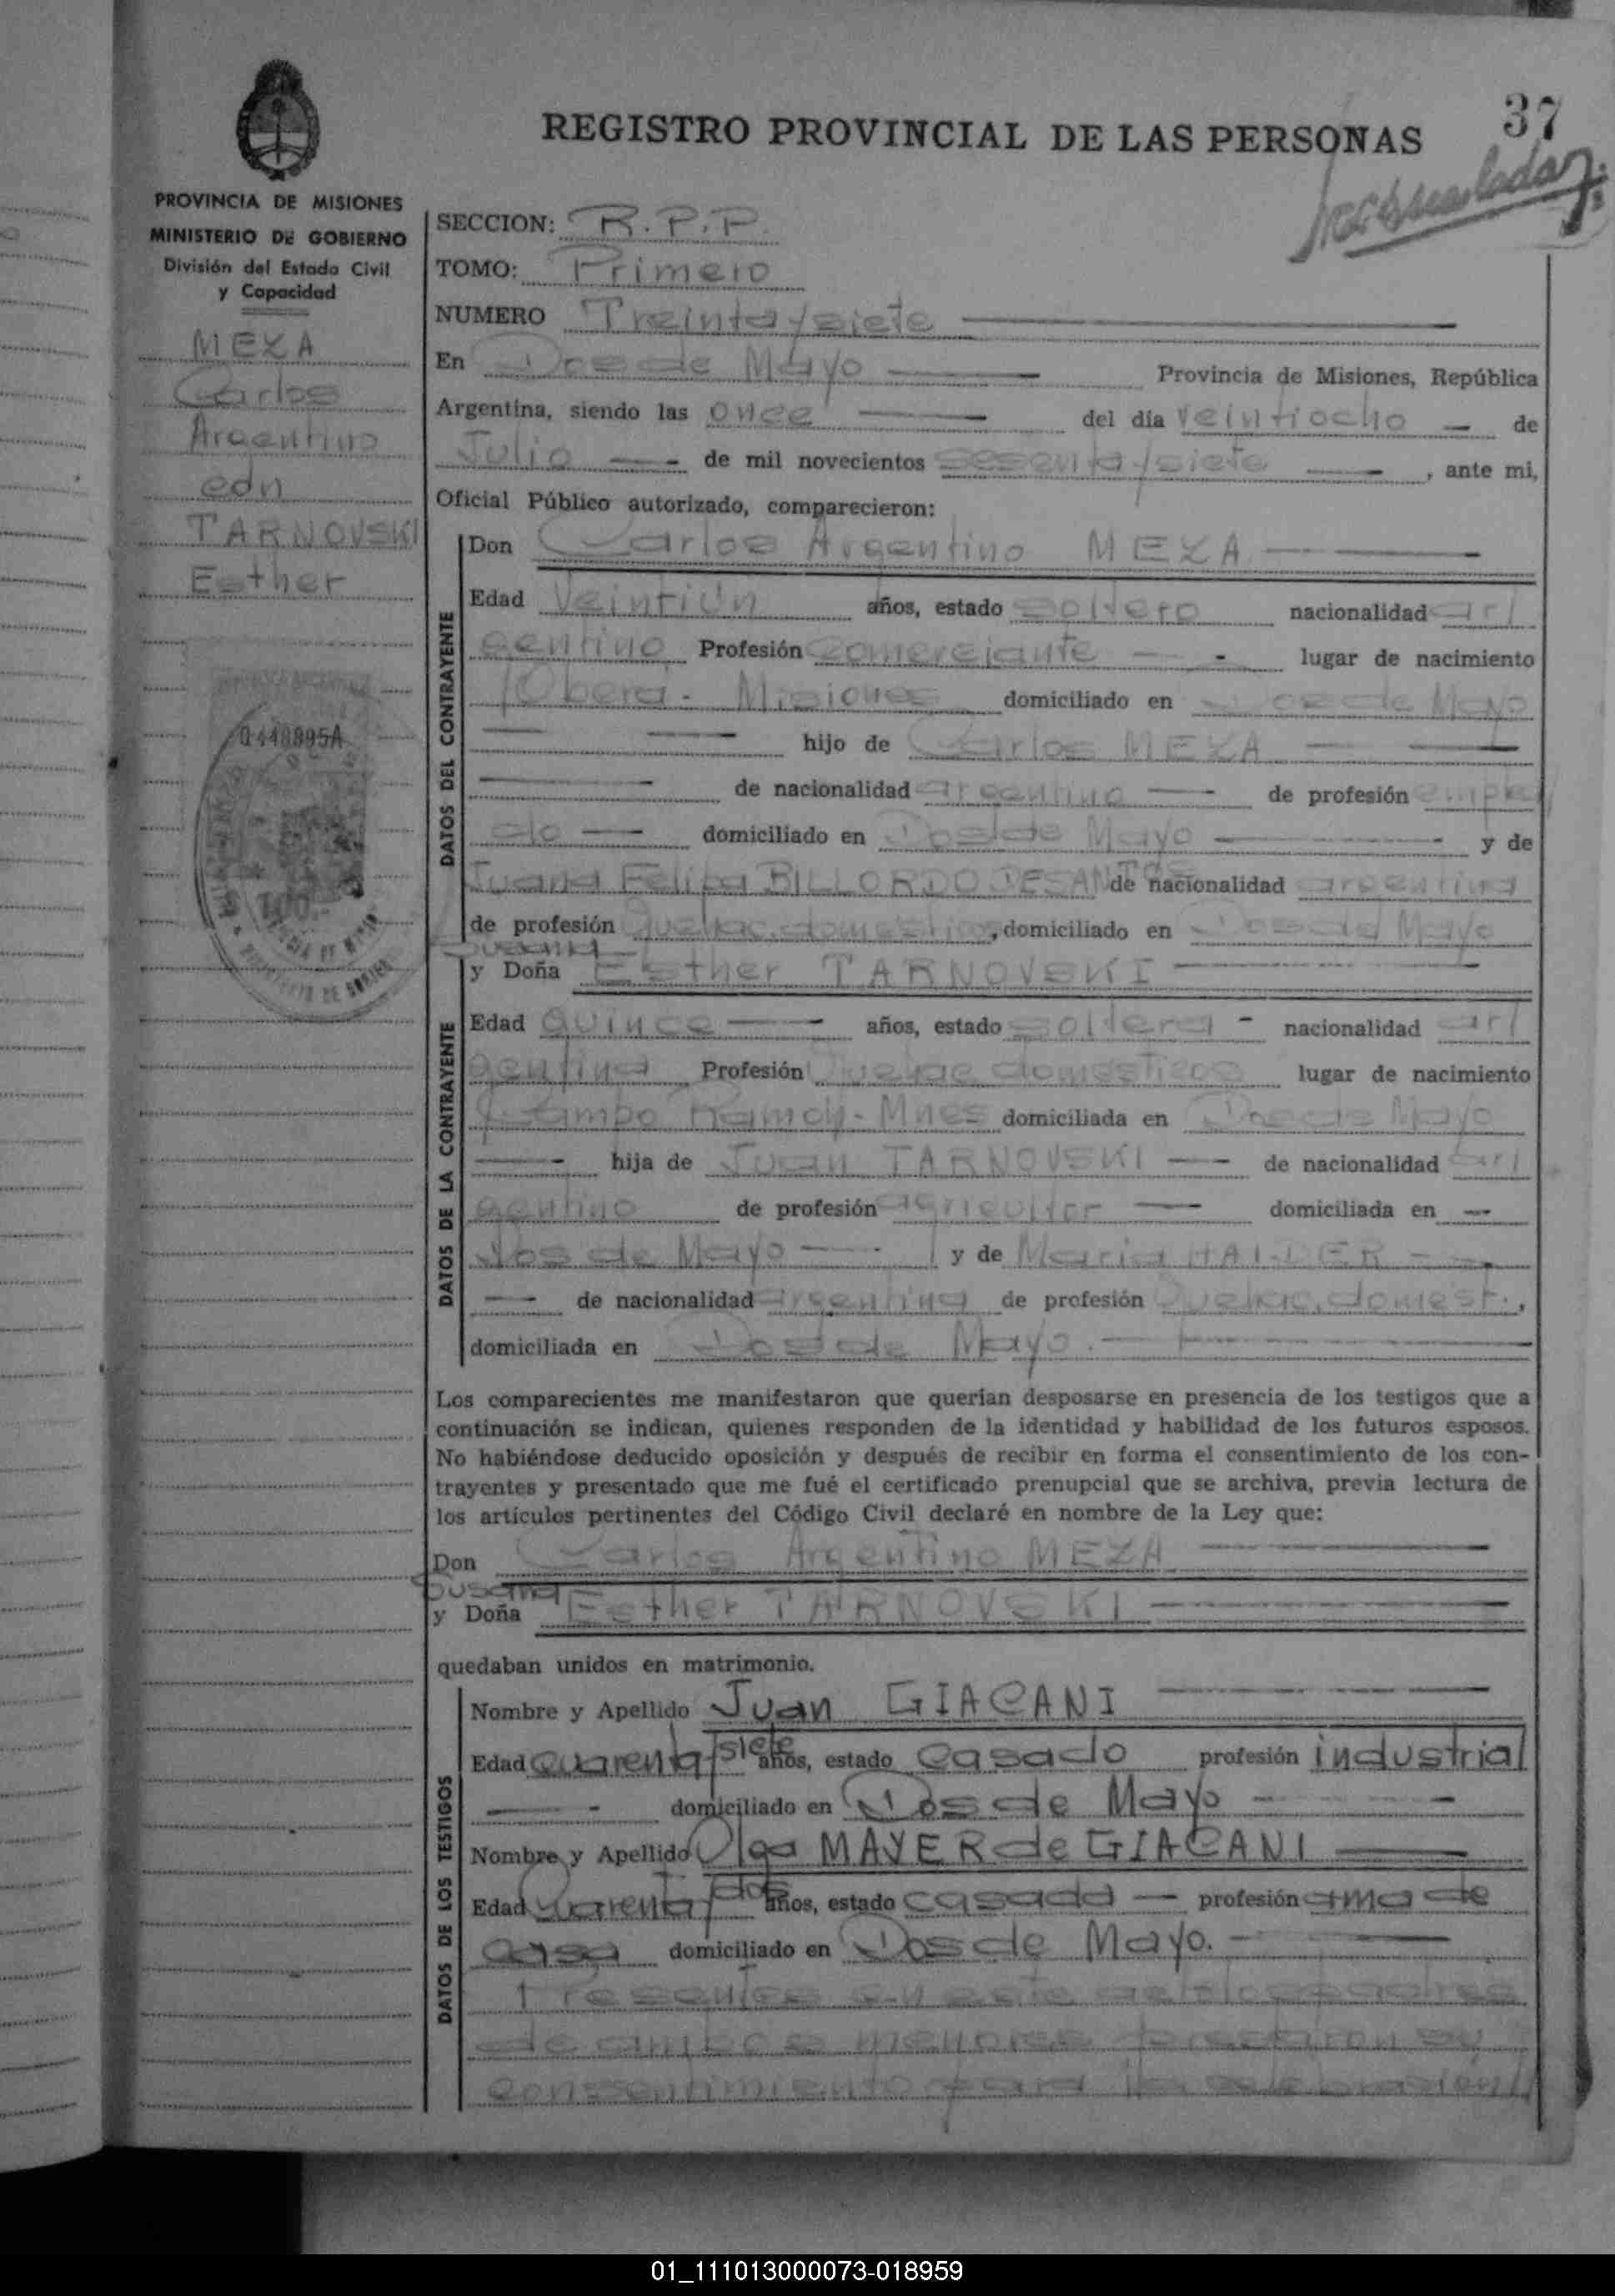 37
REGISTRO PROVINCIAL DE LAS PERSONAS
PROVINCIA DE MISIONES
MINISTERIO DE GOBIERNO
División del Estado Civil
y Capacidad
MEZA
Carlos
Argentino
con
TARNOVSKI
Esther
0448895A
SECCION: R.P.P.
TOMO: Primero
NUMERO Treinta y siete
En Dos de Mayo Provincia de Misiones, República
Argentina, siendo las once del día veintiocho de
Julio de mil novecientos sesenta y siete, ante mi,
Oficial Público autorizado, comparecieron:
DATOS DEL CONTRAYENTE
Don Carlos Argentino MEZA
Edad Veintiún años, estado soltero nacionalidad ar/
gentino Profesión comerciante lugar de nacimiento
Oberá - Misiones domiciliado en Dos de Mayo
hijo de Carlos MEZA
de nacionalidad argentino de profesión emplea/
do domiciliado en Dos de Mayo y de
Juana Felipa BILLORDO DE SANTOS de nacionalidad argentina
de profesión Quehac. domésticos, domiciliado en Dos de Mayo
Susana
y Doña Esther TARNOVSKI
DATOS DE LA CONTRAYENTE
Edad Quince años, estado soltera nacionalidad ar/
gentina Profesión Quehac domesticos lugar de nacimiento
Campo Ramon - Mnes domiciliada en Dos de Mayo
hija de Juan TARNOVSKI de nacionalidad ar/
gentino de profesión agricultor domiciliada en
Dos de Mayo y de Maria HAIDER
de nacionalidad argentina de profesión Quehac. domest.,
domiciliada en Dos de Mayo.
Los comparecientes me manifestaron que querían desposarse en presencia de los testigos que a
continuación se indican, quienes responden de la identidad y habilidad de los futuros esposos.
No habiéndose deducido oposición y después de recibir en forma el consentimiento de los con-
trayentes y presentado que me fué el certificado prenupcial que se archiva, previa lectura de
los artículos pertinentes del Código Civil declaré en nombre de la Ley que:
Don Carlos Argentino MEZA
Susana
y Doña Esther TARNOVSKI
quedaban unidos en matrimonio.
DATOS DE LOS TESTIGOS
Nombre y Apellido Juan GIACANI
Edad Cuarenta y siete años, estado Casado profesión industrial
domiciliado en Dos de Mayo
Nombre y Apellido Olga MAYER de GIACANI
Edad Cuarenta y dos años, estado casada profesión ama de
casa domiciliado en Dos de Mayo.
Presentes en este acto los padres
de ambos menores prestaron su
consentimiento para la celebración/
01_111013000073-018959